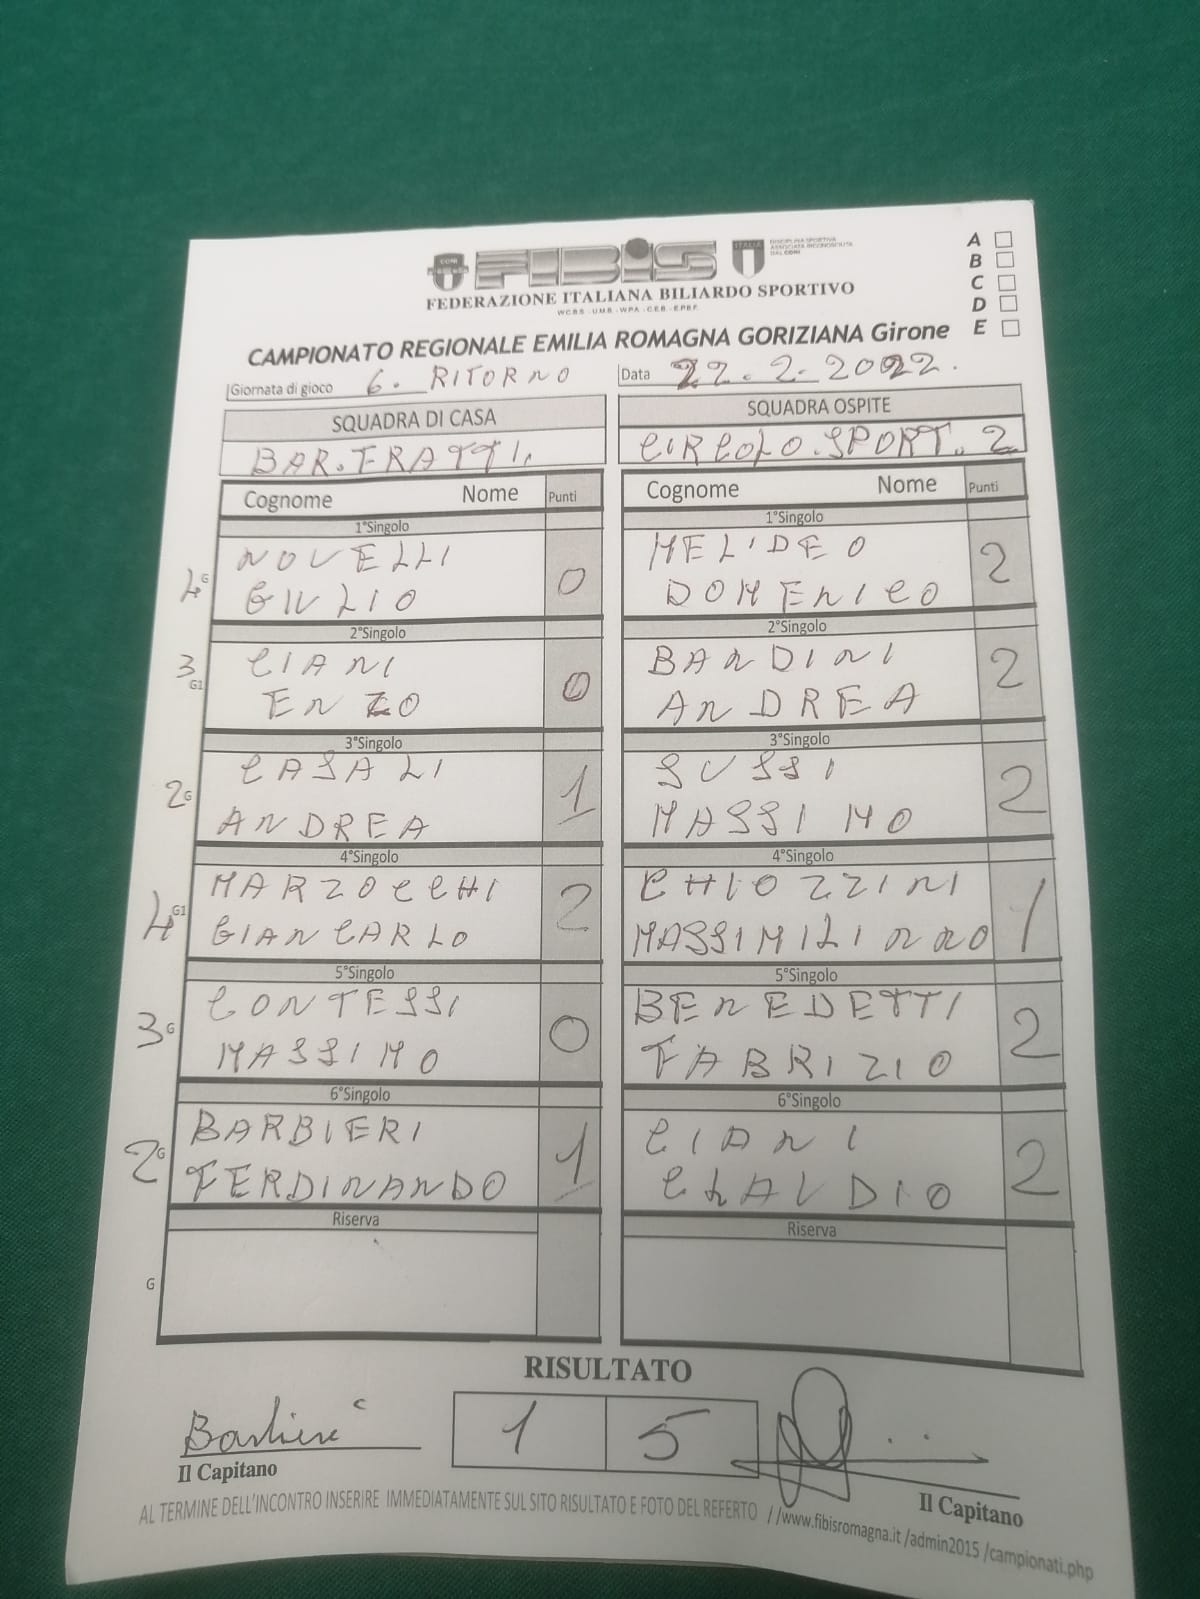 CONI
FIBIS
ITALIA
DISCIPLINA SPORTIVA
ASSOCIATA RICONOSCIUTA
DAL CONI
FEDERAZIONE ITALIANA BILIARDO SPORTIVO
W.C.B.S. - U.M.B. - W.P.A. - C.E.B. - E.P.B.F.
A
B
C
D
E
CAMPIONATO REGIONALE EMILIA ROMAGNA GORIZIANA Girone
Giornata di gioco 6. RITORNO Data 22.2.2022.
SQUADRA DI CASA SQUADRA OSPITE
BAR.FRATTI. CIRCOLO.SPORT.2
Cognome Nome Punti Cognome Nome Punti
1°Singolo 1°Singolo
NOVELLI MELIDEO
4G GIULIO 0 DOMENICO 2
2°Singolo 2°Singolo
3 G1 CIANI BANDINI
ENZO 0 ANDREA 2
3°Singolo 3°Singolo
CASALI SUSSI
2G ANDREA 1 MASSIMO 2
4°Singolo 4°Singolo
MARZOCCHI CHIOZZINI
4 G1 GIANCARLO 2 MASSIMILINNO 1
5°Singolo 5°Singolo
CONTESSI BENEDETTI
3G MASSIMO 0 FABRIZIO 2
6°Singolo 6°Singolo
BARBIERI CIANI
2G FERDINANDO 1 CLAUDIO 2
Riserva Riserva
G
RISULTATO
Barbieri 1 5
Il Capitano Il Capitano
AL TERMINE DELL'INCONTRO INSERIRE IMMEDIATAMENTE SUL SITO RISULTATO E FOTO DEL REFERTO //www.fibisromagna.it /admin2015 /campionati.php